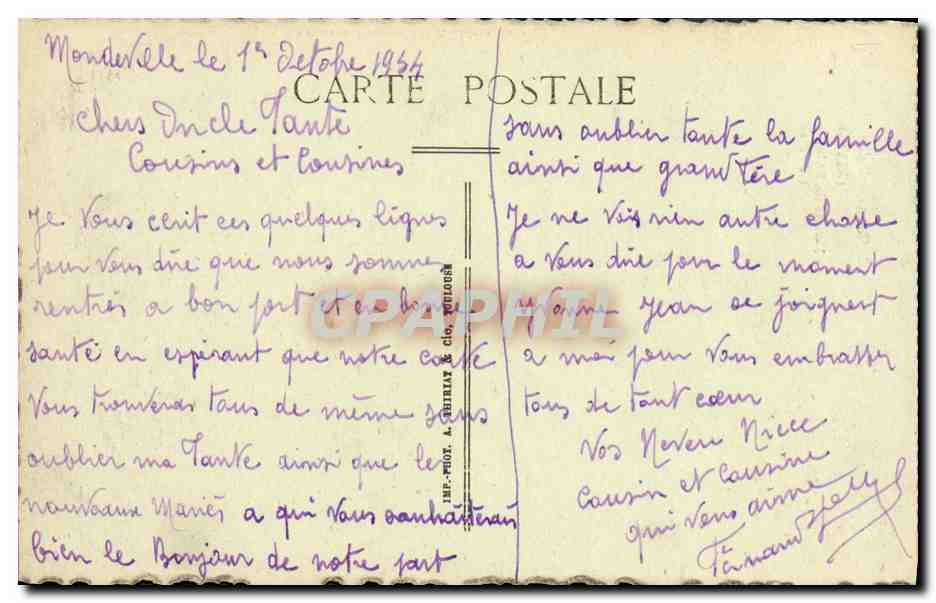 Mondeville le 1er Octobre 1954
CARTE POSTALE
Chers Oncle Tante
Cousins et Cousines
Je vous ecrit ces quelques lignes
pour vous dire que nous somme
rentrés a bon port et en bonne
santé en espérant que notre carte
vous trouveras tous de même sans
oublier ma Tante ainsi que les
nouveaux Mariés a qui vous souhaiterais
bien le Bonjour de notre part
sans oublier tante la famille
ainsi que grand Père
Je ne vois rien autre chosse
a vous dire pour le moment
Yvonne Jean se joignest
a moi pour vous embrasser
tous de tout cœur
Vos Neveu Niece
cousin et cousine
qui vous aime
IMP.-PHOT. A. THIRIAT & Cie, TOULOUSE
CPAPHIL